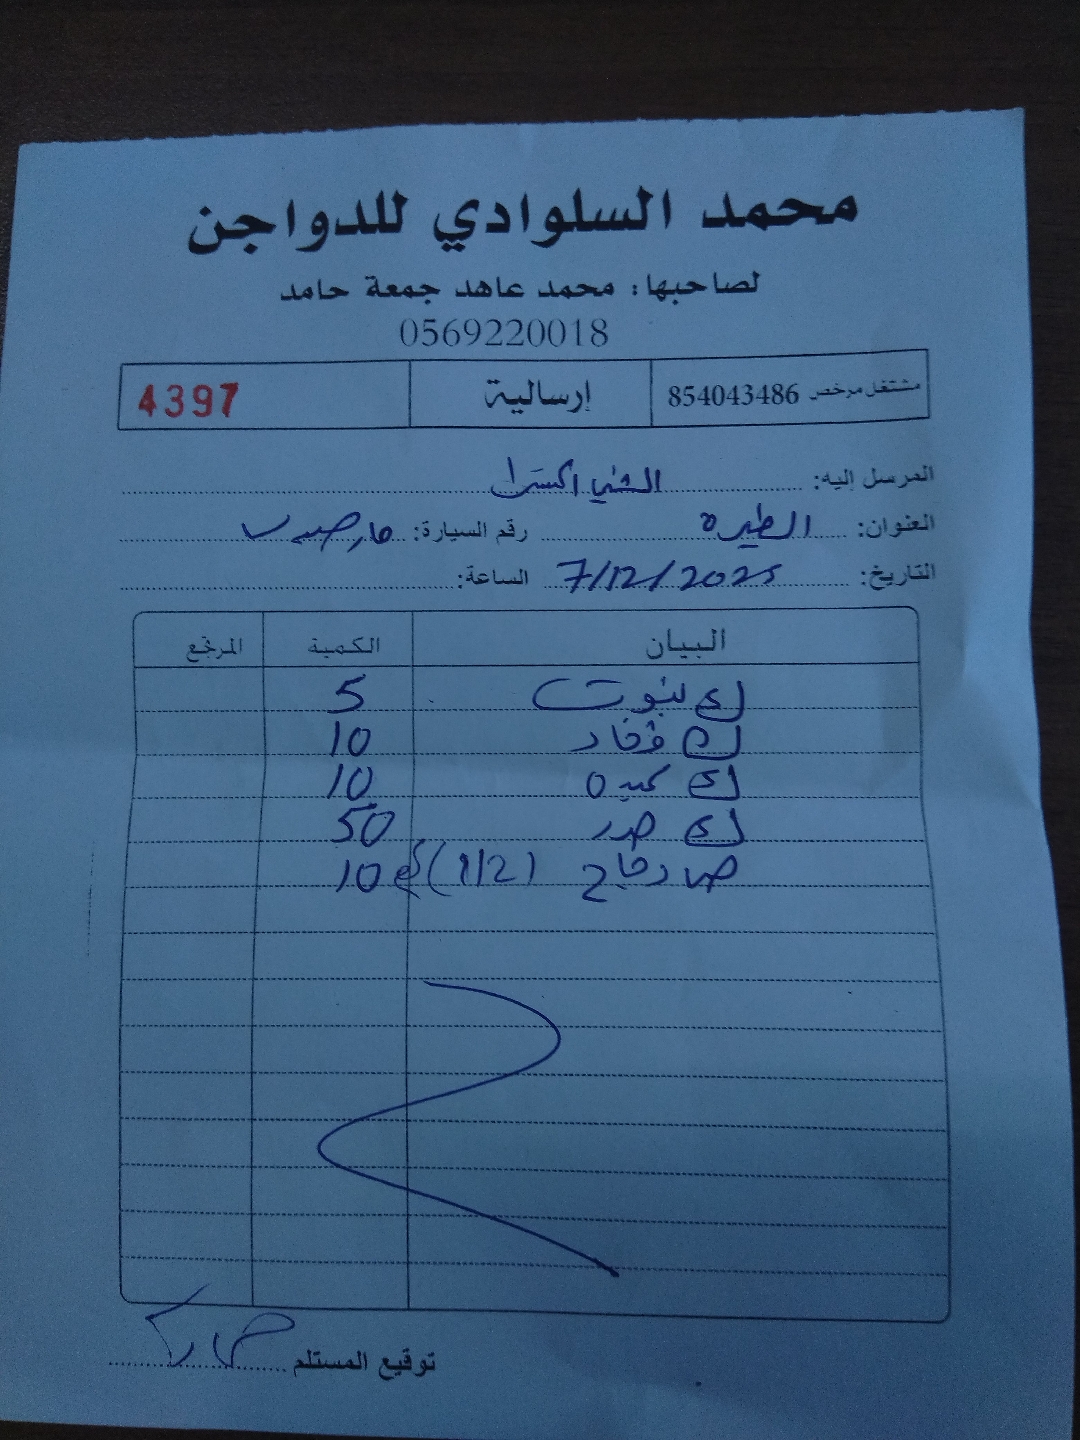 محمد السلوادي للدواجن
لصاحبها: محمد عاهد جمعة حامد
0569220018
مشتغل مرخص 854043486 إرسالية 4397
المرسل إليه: الشني اكسترا
العنوان: الطيرة رقم السيارة:
التاريخ: 7/12/2025 الساعة:
البيان الكمية المرتجع
ك دبوت 5
ك فخاد 10
ك كبده 10
ك صدر 50
(1/2) 10
توقيع المستلم